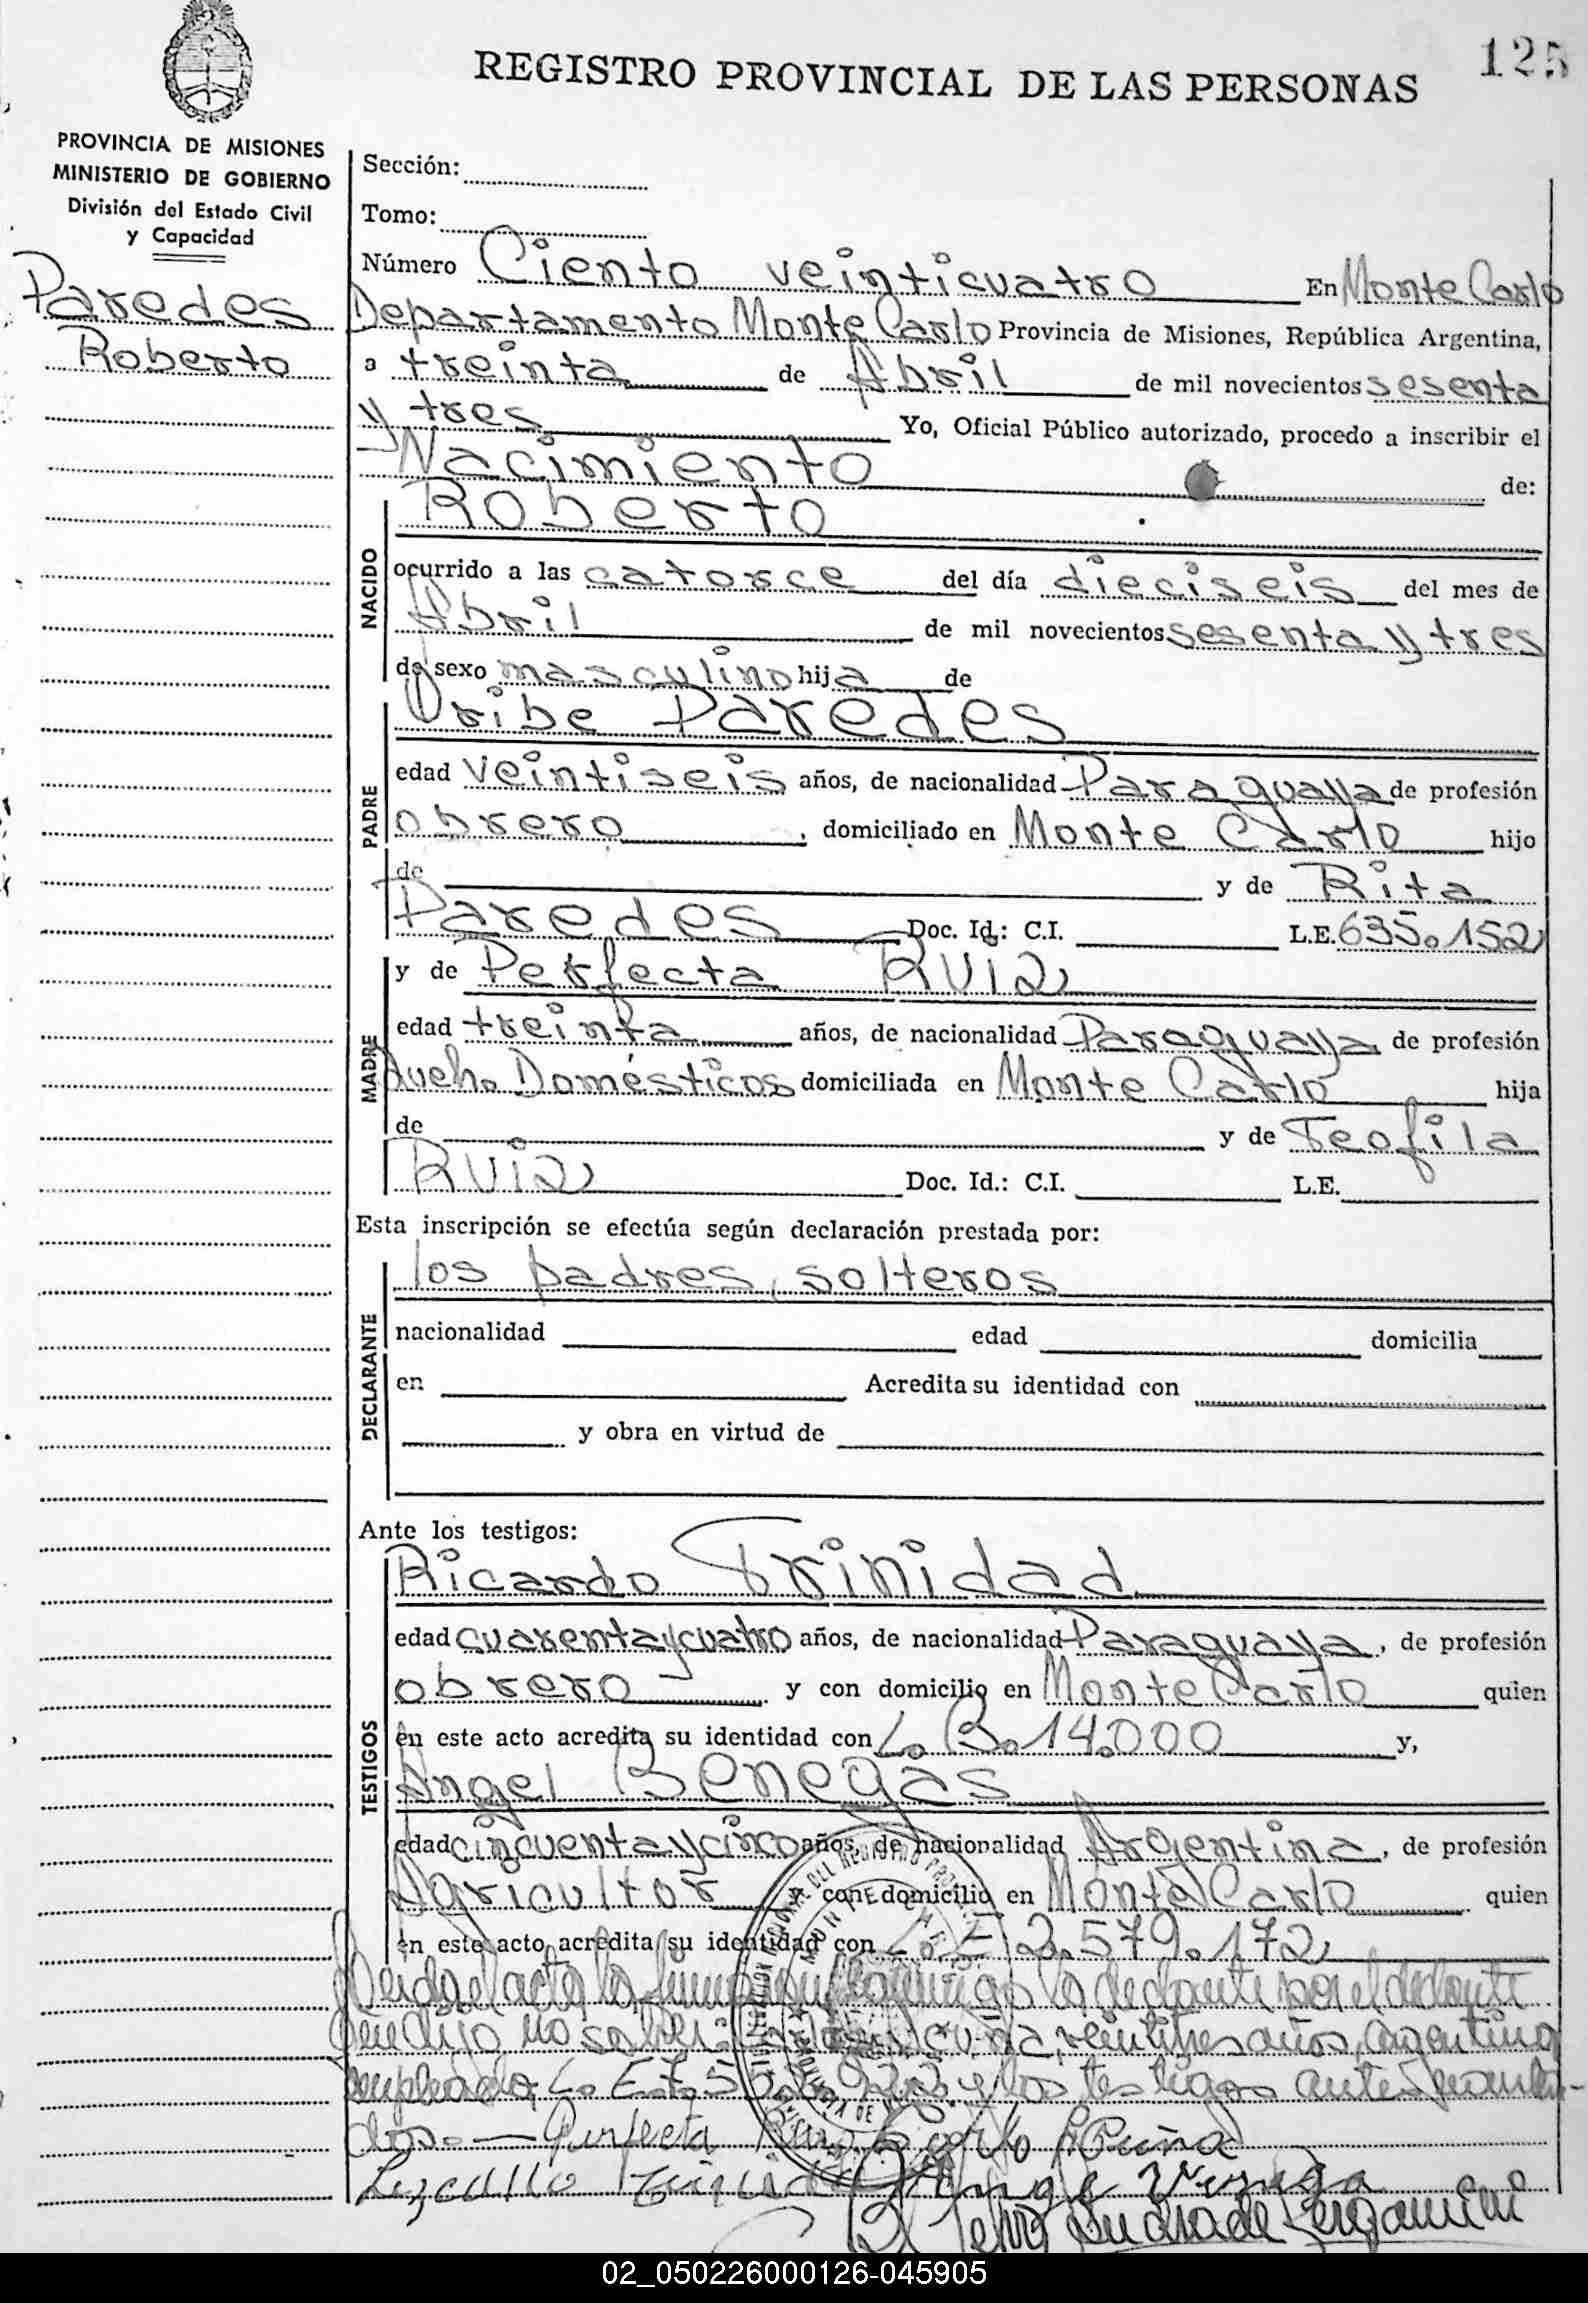 125
REGISTRO PROVINCIAL DE LAS PERSONAS
PROVINCIA DE MISIONES
MINISTERIO DE GOBIERNO
División del Estado Civil
y Capacidad
Paredes
Roberto
Sección:
Tomo:
Número Ciento veinticuatro En Monte Carlo
Departamento Monte Carlo Provincia de Misiones, República Argentina,
a treinta de Abril de mil novecientos sesenta
y tres Yo, Oficial Público autorizado, procedo a inscribir el
Nacimiento de:
NACIDO
Roberto
ocurrido a las catorce del día dieciseis del mes de
Abril de mil novecientos sesenta y tres
de sexo masculino hija de
PADRE
Uribe Paredes
edad veintiseis años, de nacionalidad Paraguaya de profesión
obrero, domiciliado en Monte Carlo hijo
de y de Rita
Paredes Doc. Id.: C.I. L.E. 635.152
MADRE
y de Perfecta Ruiz
edad treinta años, de nacionalidad Paraguaya de profesión
Queh. Domésticos domiciliada en Monte Carlo hija
de y de Teofila
Ruiz Doc. Id.: C.I. L.E.
Esta inscripción se efectúa según declaración prestada por:
DECLARANTE
los padres, solteros
nacionalidad edad domicilia
en Acredita su identidad con
y obra en virtud de
Ante los testigos:
TESTIGOS
Ricardo Trinidad
edad cuarenta y cuatro años, de nacionalidad Paraguaya, de profesión
obrero y con domicilio en Monte Carlo quien
en este acto acredita su identidad con L. B. 14.000 y,
Angel Benegas
edad cincuenta y cinco años, de nacionalidad Argentina, de profesión
Agricultor y con domicilio en Monte Carlo quien
en este acto acredita su identidad con L. E. 2.579.172
Leida el acta la conmigo la declarante por el declarante
que dijo no saber: Cuña, veintitres años, argentino
empleado, L. E. 7.5 y los testigos antes nombra-
dos. — Perfecta Ruiz
02_050226000126-045905